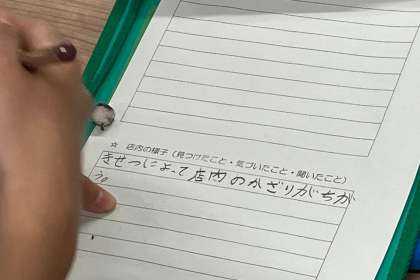 ☆ 店内の様子（見つけたこと・気づいたこと・聞いたこと）
きせつによって店内のかざりがちが
う。